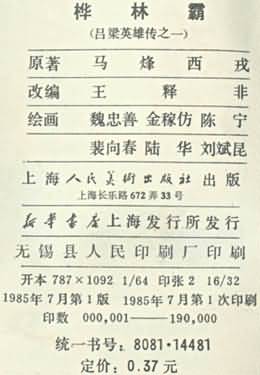 桦林霸
(吕梁英雄传之一)
原著 马烽 西戎
改编 王释非
绘画 魏忠善 金稼仿 陈宁
裴向春 陆华 刘斌昆
上海人民美術出版社出版
上海长乐路672弄33号
新华书店上海发行所发行
无锡县人民印刷厂印刷
开本 787×1092 1/64 印张 2 16/32
1985年7月第1版 1985年7月第1次印刷
印数 000,001——190,000
统一书号: 8081·14481
定价: 0.37元